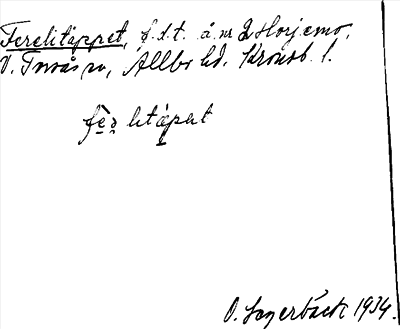 Ferelitäppet, f.d.t. å nr 2 Horjemo,
V. Torsås sn, Allbo hd. Kronob. l.
fe̱ṟ litäpet
O. Lagerbäck 1934.